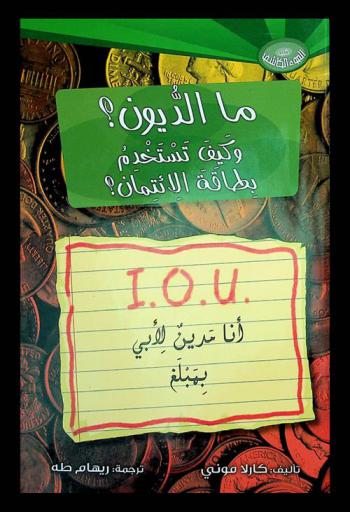 كتب
الضوء الكاشف
ما الدُّيون؟
وَكَيفَ تَسْتَخْدِمُ
بِطاقَةَ الإئتِمان؟
I.O.U.
أنا مَدينٌ لِأبي
بِمَبْلَغ
تأليف: كارلا موني
ترجمة: ريهام طه